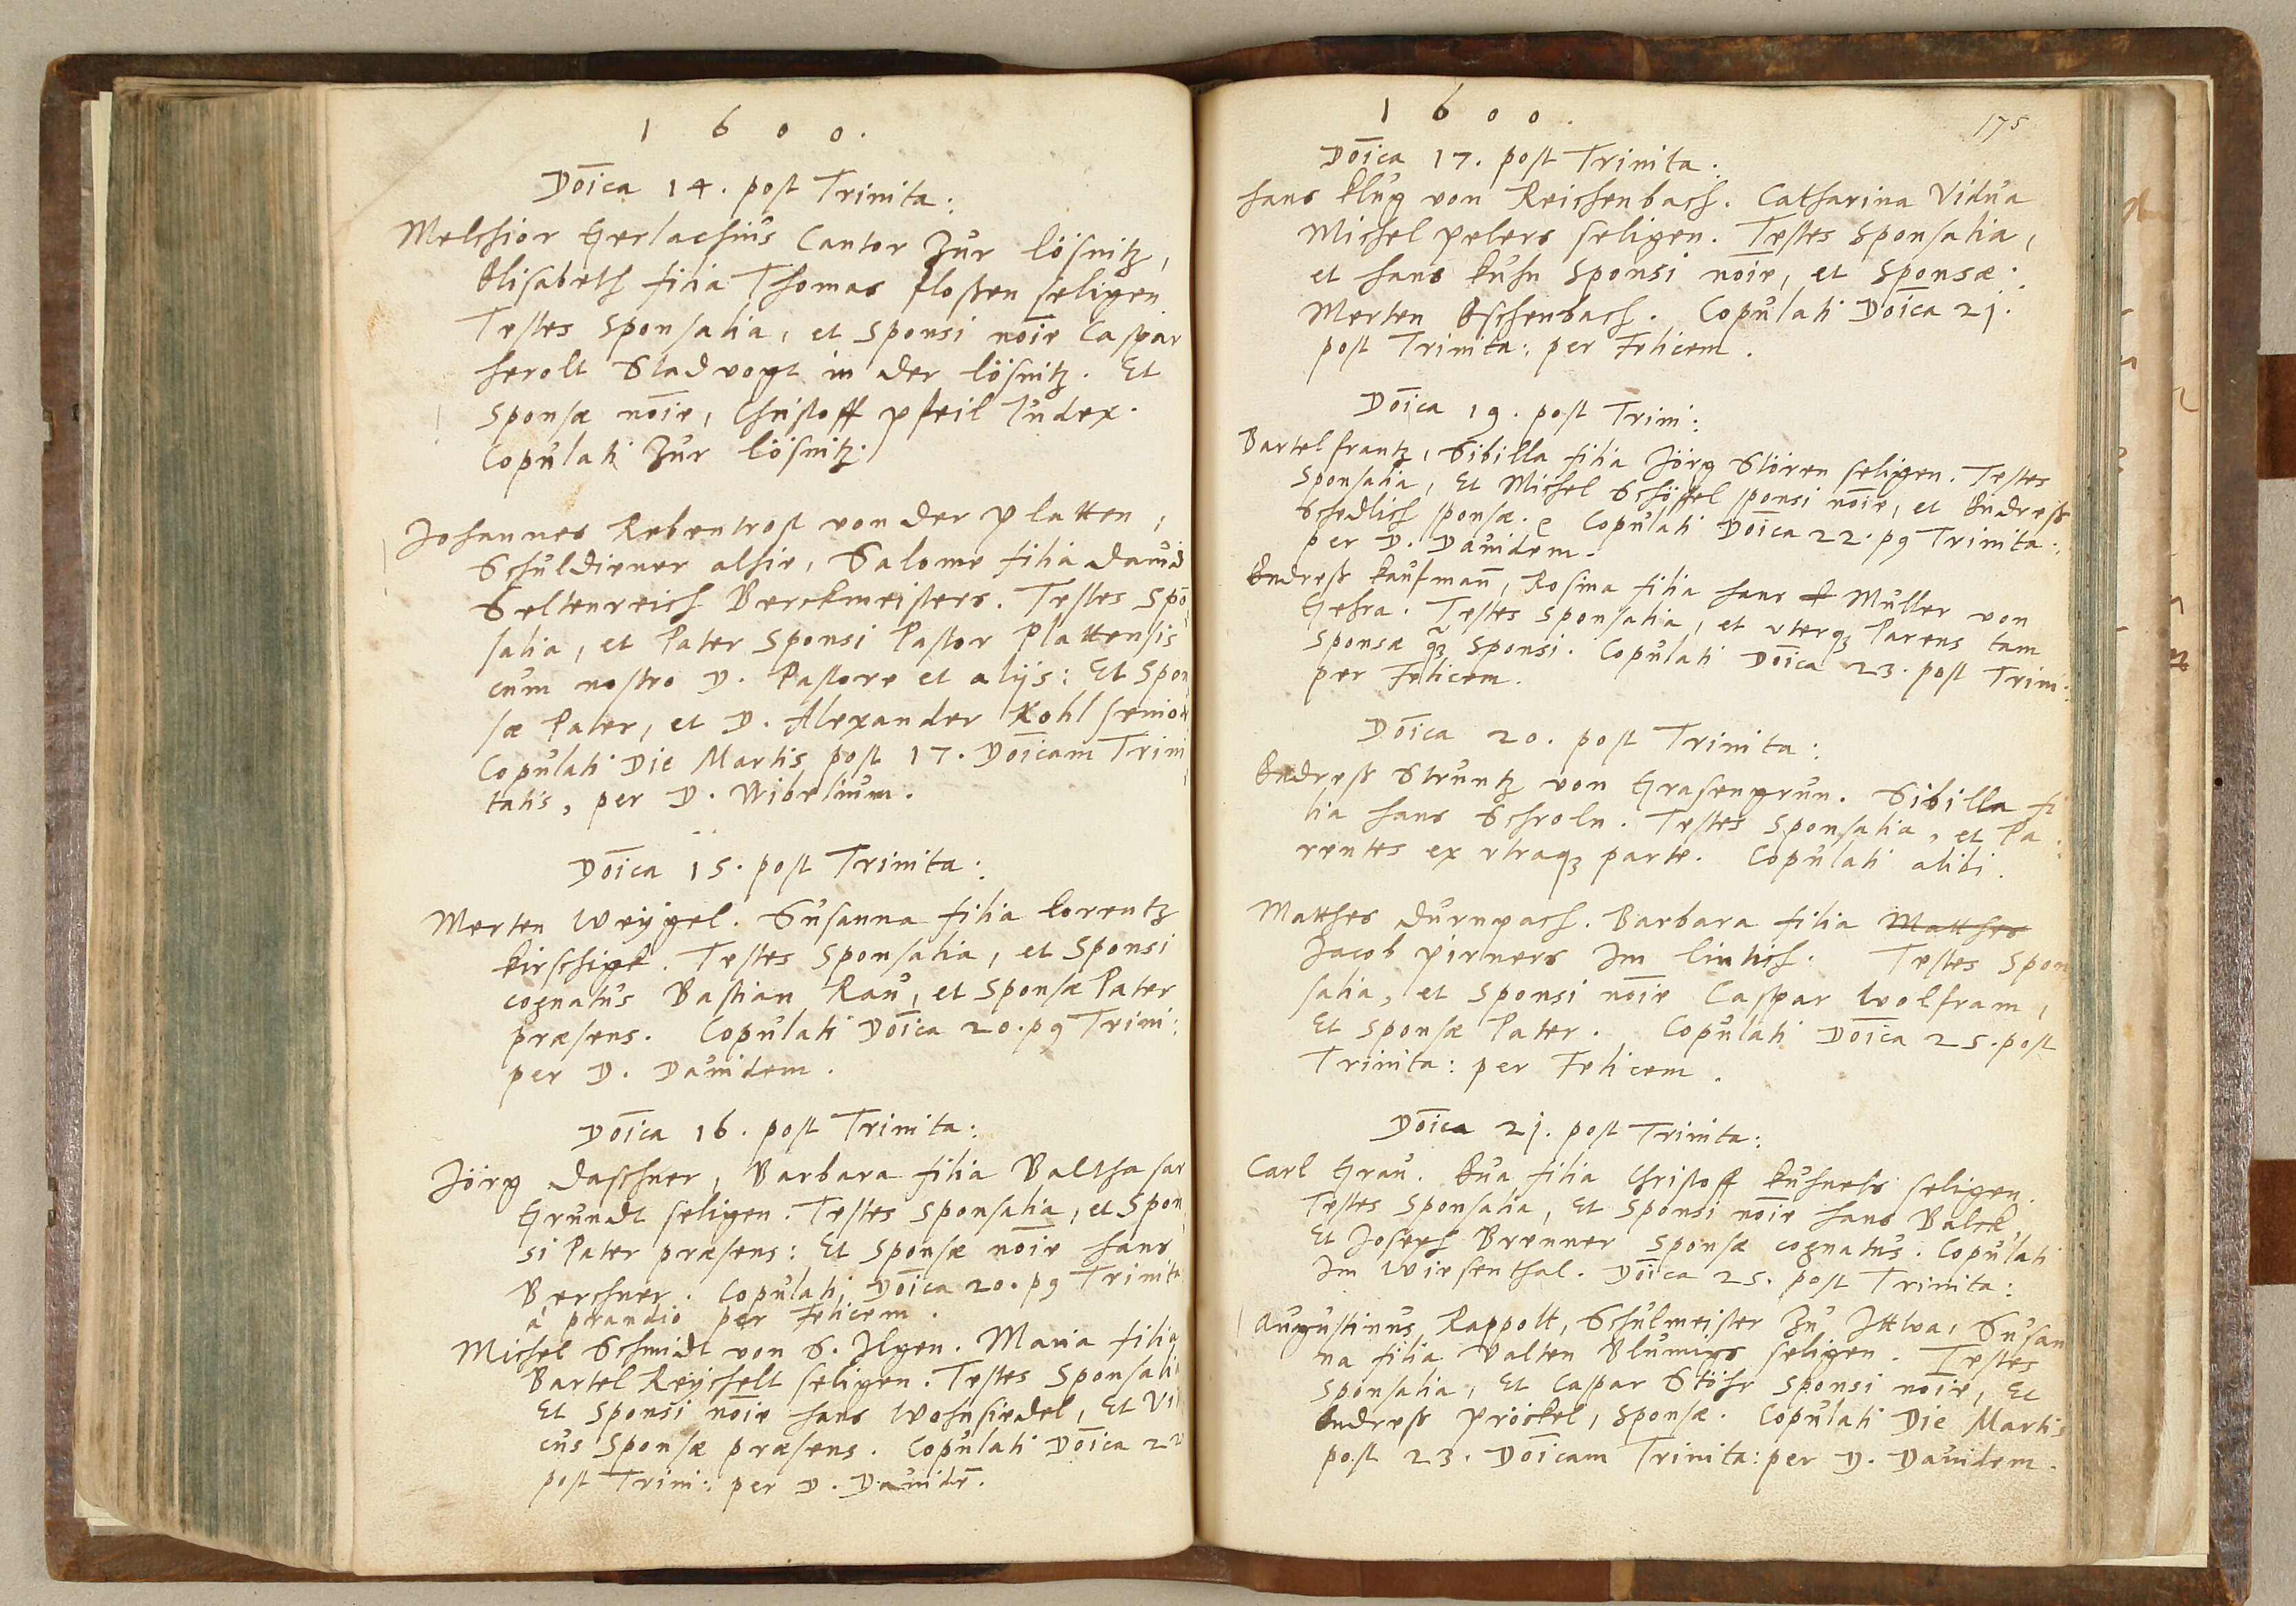 1600.
Dōica 14. post Trinita:
Melchior Gerlachius Cantor Zur Lösnitz,
Elisabeth filia Thomas flossen seligen
Testes Sponsalia, et Sponsi nōie Caspar
herolt Stadvogt in der Lösnitz. Et
Sponsæ nōie, Christoff Pfeil Iudex.
Copulati Zur Lösnitz.
Johannes Rebentrost von der Platten,
Schuldiener alhie, Salome filia David
Seltenreich Berckmeisters. Testes Spō
salia, et Pater Sponsi Pastor Plattensis
cum nostro D. Pastore et alijs: Et Spon
sæ Pater, et D. Alexander Kohl senior
Copulati Die Martis post 17. Dōicam Trini
tatis, per D. Wibelium.
Dōica 15. post Trinita:
Merten Weygel. Susanna filia Lorentz
Kirschigk. Testes Sponsalia, et Sponsi
cognatus Bastian Rau, et Sponsæ Pater
præsens. Copulati Dōica 20. p9 Trini:
per D. Davidem.
Dōica 16. post Trinita:
Jörg Daschner, Barbara filia Balthasar
Grundt seligen. Testes Sponsalia, et Spon
si Pater præsens: Et Sponsæ nōie hans
Berchner. Copulati Dōica 20. p9 Trinita
à prandio per Felicem.
Michel Schmidt von S. Ilgen. Maria filia
Bartel Reychelt seligen. Testes Sponsali
Et Sponsi nōie hans Wohnsiedel, Et Vi
cus Sponsæ præsens. Copulati Dōica 22
post Trini: per D. Davidē.
1600.
175
Dōica 17. post Trinita:
hans Klug von Reichenbach. Catharina Vidua
Michel Pelers seligen. Testes Sponsalia,
et hans Kuhn Sponsi nōie, et Sponsæ:
Merten Eschenbach. Copulati Dōica 21.
post Trinita: per Felicem.
Dōica 19. post Trini:
Bartel frantz, Sibilla filia Jörg Stören seligen. Testes
Sponsalia, Et Michel Schössel sponsi nōie, et Endress
Schedlich sponsæ. Copulati Dōica 22. p9 Trinita:
per D. Davidem.
Endress Kaufman̄, Rosina filia hans Müller von
Gefra. Testes Sponsalia, et vterq3 Parens tam
Sponsæ q̄3 Sponsi. Copulati Dōica 23. post Trini:
per Felicem.
Dōica 20. post Trinita:
Endress Struntz von Grasengrun. Sibilla fi
lia hans Schroln. Testes Sponsalia, et Pa:
rentes ex vtraq3 parte. Copulati alibi.
Matthes Durnpach. Barbara filia Matthes
Jacob Pirners Im Lintich. Testes Spon
salia, et Sponsi nōie Caspar Wolfram,
Et Sponsæ Pater. Copulati Dōica 25. post
Trinita: per Felicem.
Dōica 21. post Trinita:
Carl Grau. Eua filia Christoff Kuhnels seligen.
Testes Sponsalia, Et Sponsi nōie hans Balck,
Et Joseph Brenner Sponsæ cognatus. Copulati
Im Wiesenthal. Dōica 25. post Trinita:
Augustinus Rappolt, Schulmeister Zu Ittwa, Susan
na filia Valten Blumigs seligen. Testes
Sponsalia, Et Caspar Stöhr Sponsi nōie, Et
Endress Pröckel, Sponsæ. Copulati Die Martis
post 23. Dōicam Trinita: per D. Davidem.